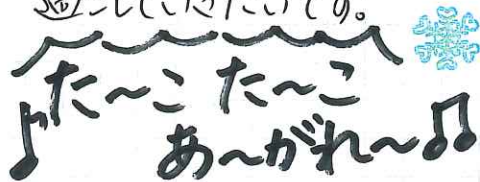 過ごしていきたいです。
た〜こ た〜こ
あ〜がれ〜